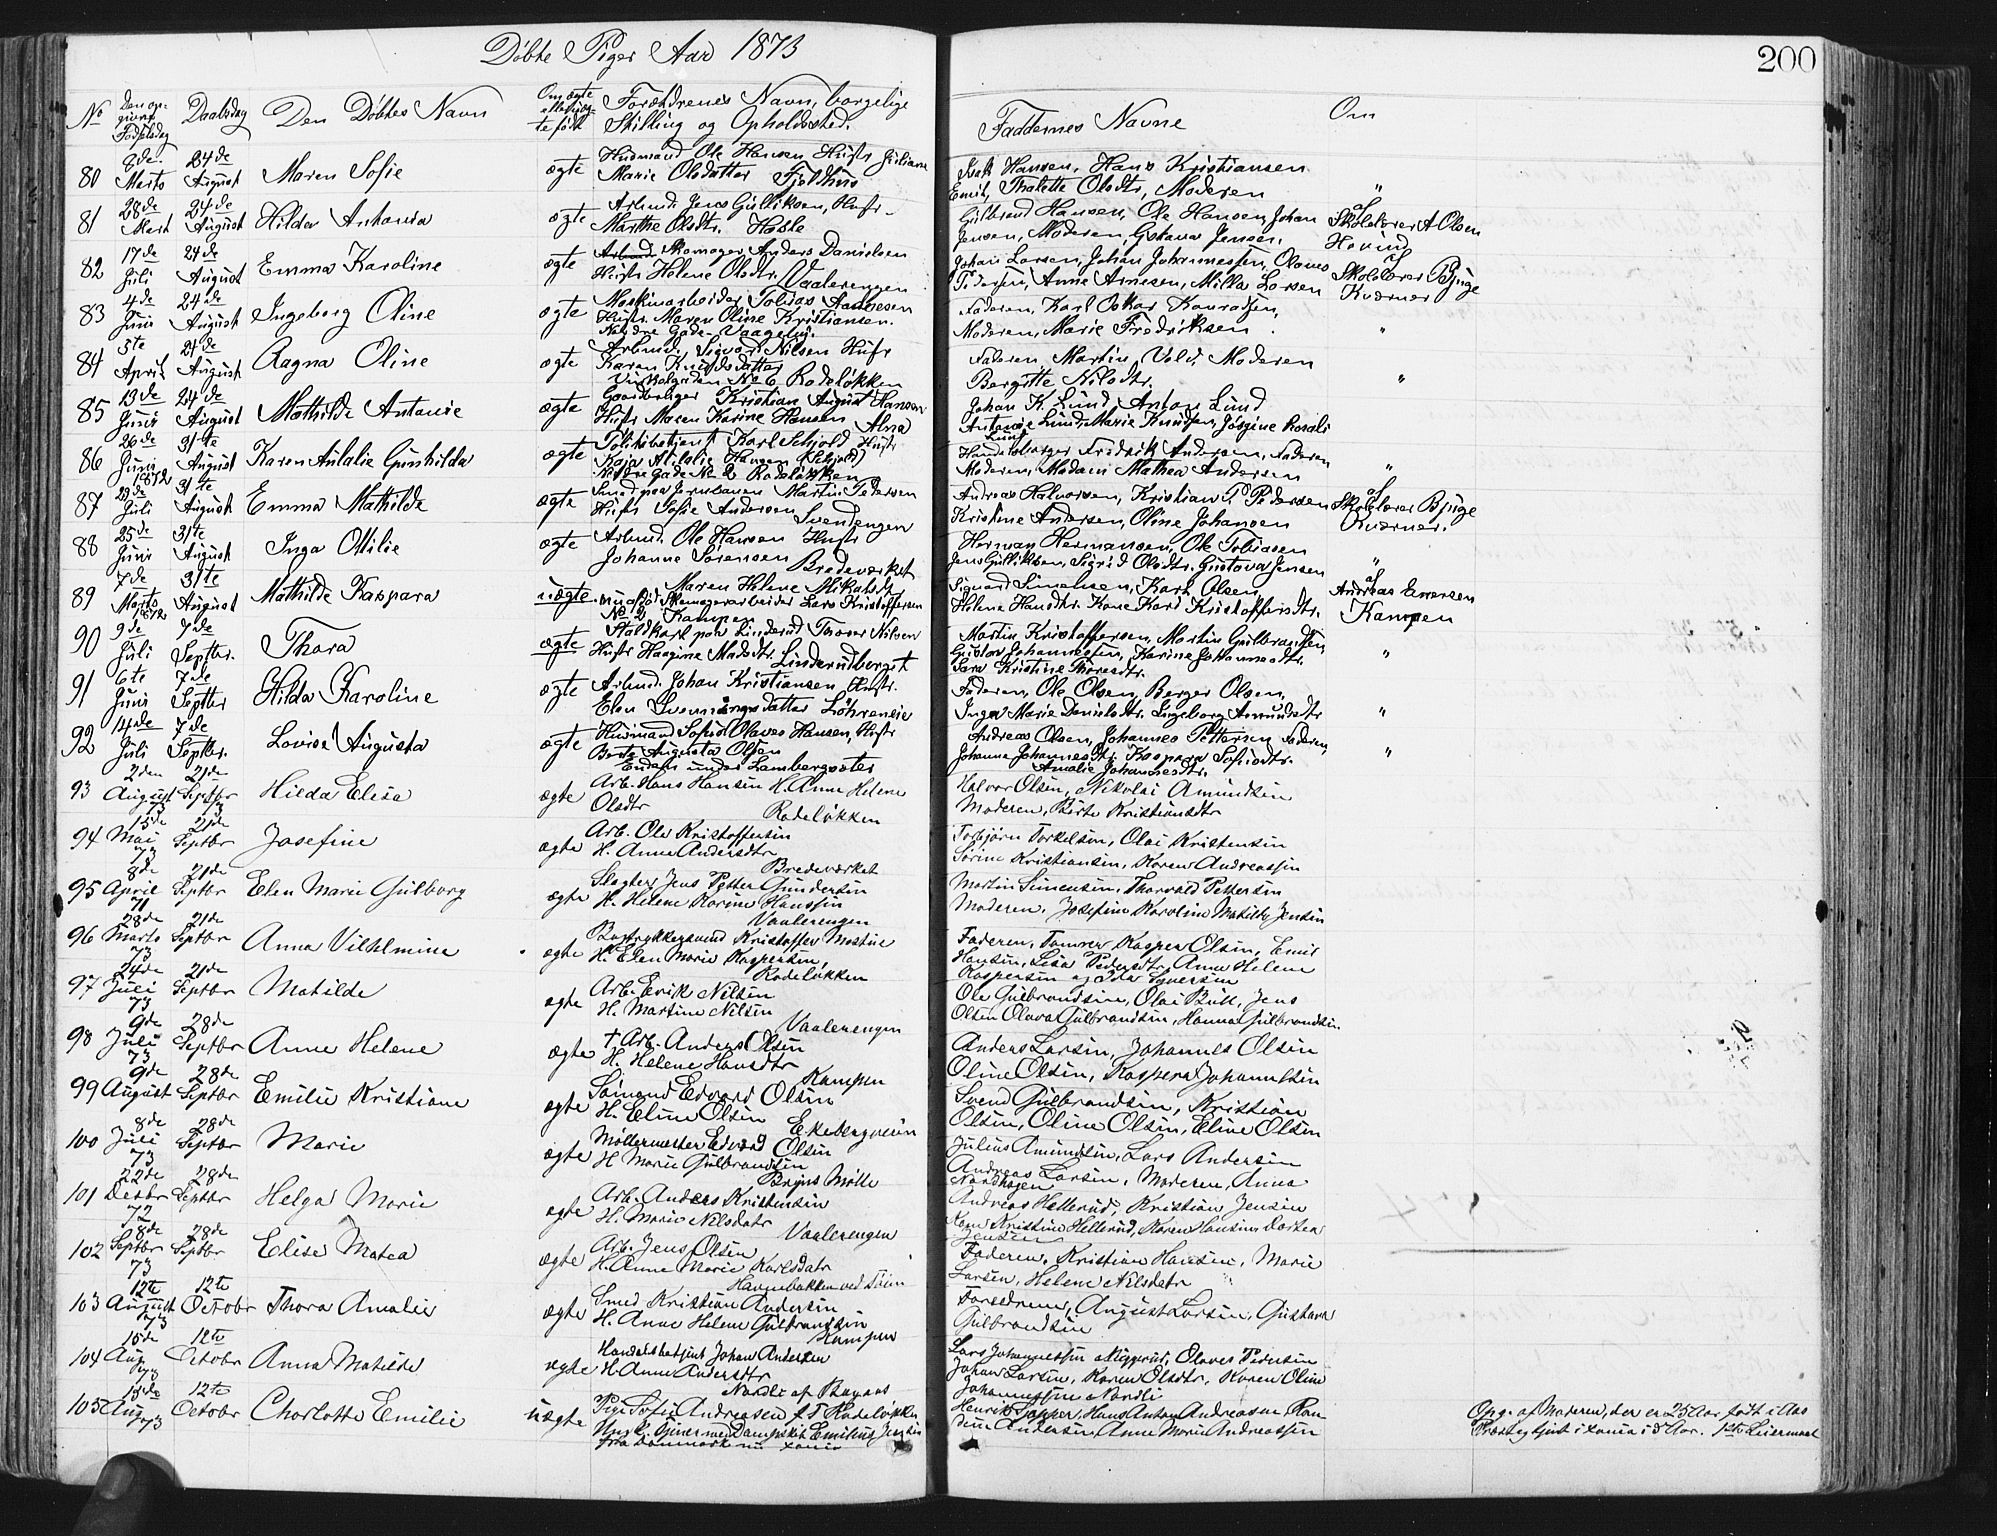 Døbte Piger Aar 1873
200
No
Den op-
givne
Fødselsdag
Daabsdag
Den Døbtes Navn
Om ægte
eller uæg-
te født
Forældrenes Navn, borgelige
Stilling og Opholdssted.
Faddernes Navne
Om
80 8de Marts 24de August Maren Sofie ægte Husmand Ole Hansen Hustr Juliane
Marie Olsdatter Fjeldhus
Isak Hansen, Hans Kristiansen
Emil, Thalette Olsdtr, Moderen "
81 28de Mart 24de August Hilda Antonia ægte Arbmd. Jens Gulliksen, Hustr
Marthe Olsdtr. Hasle
Gulbrand Hansen, Ole Hansen, Johan
Jensen, Moderen, Gstava Jensen.
af Skolelærer A Olsen
Hovind
82 17de Juli 24de August Emma Karoline ægte Skomager Anders Danielsen
Hustr Helene Olsdtr. Vaalerengen
Johan Larsen, Johan Johannessen, Olaves
Pedersen, Anne Arnesen, Milla Larsen
af Skolelærer Bjuge
Kværner
83 4de Juni 24de August Ingeborg Oline ægte Maskinarbeider Tobias Aadnesen
Hustr. Maren Oline Kristiansen.
Nordre Gade - Vaagebyg.
Faderen, Karl Oskar Konradsen,
Moderen, Marie Fredriksen "
84 3te April 24de August Ragna Oline ægte Arbmd. Sigvart Nilsen Hustr
Karen Knudsdatter
No 6 Rodeløkken
Faderen Martin Vold, Moderen
Bergitte Nilsdtr. "
85 13de Juni 24de August Mathilde Antonie ægte Gaardbruger Kristian August Hansen
Hustr Maren Karine Hansen Alna
Johan K. Lund, Anton Lund
Antonie Lund, Marie Knudsen, Josefine Rosali
Lund
86 26de Juni 1872 31te August Karen Aulalie Gunhilda ægte Politibetjent Karl Schjold Hustr
Kaja Alilalie Hansen (Schjold)
Nordre Gade No 2 Rodeløkken
Handelsborger Fredrik Andersen, Faderen
Moderen, Madam Mathea Andersen "
87 29de Juli 31te August Emma Mathilde ægte Smed paa Jernbanen Martin Pedersen
Hustr Sofie Andersen Svendengen
Andreas Halvorsen, Kristian P. Pedersen
Kristine Andersen, Oline Johansen
af Skolelærer Bjuge
Kværner.
88 25de Juni 31te August Inga Otilie ægte Arbmd. Ole Hansen Hustr
Johanne Sørensen Bredeverket
Herman Hermansen, Ole Tobiasen
Jens Gulliksen, Sigrid Olsdtr. Gustava Jensen "
89 7de Marts 1872 31te August Mathilde Kaspara uægte Maren Helene Mikalsdtr
Skomagerarbeider Lars Kristoffersen
No 2 Kampen
Sigvard Simensen, Karl Olsen,
Helene Hansdtr. Kone Kari Kristoffersdtr.
af Andreas Evensen
Kampen
90 9de Juli 7de Septbr. Thora ægte Staldkarl paa Linderud Thover Nilsen
Hustr Haagine Madsdtr. Linderudberget
Martin Kristoffersen, Martin Gulbrandsen,
Gustav Johannessen, Karine Johannesdtr.
Sara Kristine Thoresdtr. "
91 6te Juni 7de Septbr Hilda Karoline ægte Arbmd. Johan Kristiansen Hustr.
Elen Svenningsdatter Løhreneie
Faderen, Ole Olsen, Berger Olsen,
Inga Marie Danielsdtr. Ingeborg Amundsdtr "
92 14de Juli 7de Septbr. Lovise Augusta ægte Husmand Sofus Olaves Hansen, Hustr
Berte Augusta Olsen
under Lambergseter
Andreas Olsen, Johannes Pettersen Faderen
Johanna Johannesdtr. Kaspara Sofiesdtr.
Amalie Johannesdtr. "
93 2den August 73 21de Septbr Hilda Elisa ægte Arb. Hans Hansen H. Anne Helene
Olsdtr Rodeløkken
Halvor Olsen, Nikolai Amundsen
Moderen, Berte Kristiansdtr
94 15de Mai 73 21de Septbr Josefine ægte Arb. Ole Kristoffersen
H. Anne Andersdtr Bredeverket
Torbjørn Torkelsen, Olai Kristensen
Sørine Kristiansen, Karen Andreassen
95 8de April 71 21de Septbr Elen Marie Gulborg ægte Slagter Jens Petter Gundersen
H. Helene Karine Hanssen
Vaalerengen
Martin Simensen, Thorvald Pettersen
Moderen, Josefine Karoline Matilde Jensen
96 28de Marts 73 21de Septbr Anna Vilhelmine ægte Bogtrykkersvend Kristoffer Mostue
H. Elen Marie Kaspersen, Rodeløkken
Faderen, Tømrer Kasper Olsen, Emil
Hansen, Lisa Pedersdtr, Anne Helene
Kaspersen og Ida Syversen
97 24de Juli 73 21de Septbr Matilde ægte Arb. Erik Nilsen
H. Martine Nilsen Vaalerengen
Ole Gulbrandsen, Olai Bull, Jens
Olsen Olava Gulbrandsen, Hanna Gulbrandsen
98 9de Juli 73 28de Septbr Anne Helene ægte † Arb. Anders Olsen
H. Helene Hansdtr Kampen
Anders Larsen, Johannes Olsen
Oline Olsen, Kaspara Johannesen
99 9de August 28de Septbr Emilie Kristiane ægte Sømand Edvard Olsen
H. Eline Olsen Ekebergveien
Svend Gulbrandsen, Kristian
Olsen, Oline Olsen, Eline Olsen
100 8de Juli 73 28de Septbr Marie ægte Møllermester Edvard Olsen
H Marie Gulbrandsen
Bryns Mølle
Julius Amundsen, Lars Andersen
Andreas Larsen, Moderen, Anna
Nordhagen
101 22de Decbr 72 28de Septbr Helga Marie ægte Arb. Anders Kristensen
H. Marie Nilsdatr Vaalerengen
Andreas Hellerud, Kristian Jensen
Karen Kristine Hellerud, Karen Hansine Dortea
Jensen
102 28de Septbr 73 28de Septbr Elise Matea ægte Arb. Jens Olsen
H. Anne Marie Karlsdatr
Faderen, Kristian Hansen, Marie
Larsen, Helene Nilsdatr
103 12te August 73 12te Octobr Thora Amalie ægte Smed Kristian Andersen
H. Anne Helene Gulbrandsen
Kampen
Forældrene, August Larsen, Gustava
Gulbrandsen
104 15de Aug 73 12te Octobr Anna Matilde ægte Handelsbetjent Johan Andersen
H. Anne Andersdtr
Nordli
Lars Johannessen, Olaves Pedersen
Johan Larsen, Karen Olsdtr, Karen Oline
Johannessen Nordli
105 18de Aug 73 12te Octobr Charlotte Emilie uægte Pige Sofie Andreasen f. T. Rodeløkken
Dampskib Emilius Jensen
fra Danmark nu
Henrik Topper, Hans Anton Andreasen, Ran
dine Andersen, Anne Marie Andreassen
Opg. af Moderen, der er 25 Aar, født i Aas
Præstegjeld i 8 Aar. 1ste Leiermaal